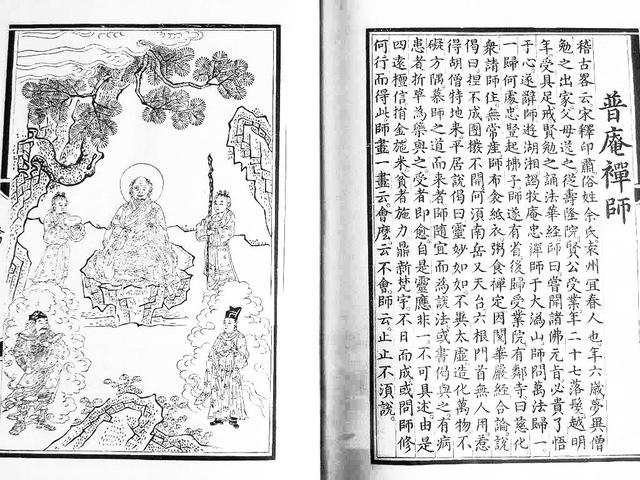 普庵禪師
稽古畧云宋釋印肅俗姓余氏袁州宜春人也年六歲夢異僧
勉之出家父母送之從壽隆院賢公受業年二十七落髮越明
年受具足戒賢勉之誦法華經師曰嘗聞諸佛元旨必貴了悟
于心遂辭師遊湖湘謁牧庵忠禪師于大溈山師問萬法歸一
一歸何處忠豎起拂子師遂有省後歸受業院有鄰寺曰慈化
衆請師住無常産師布衾紙衣粥食禪定因閱華嚴經合論說
偈曰揑不成團撥不開何須南岳又天台六根門首無人用惹
得胡僧特地來平居說偈曰靈妙如如不異太虛造化萬物不
礙方隅慕師之道而來者師隨宜而爲說法或書偈與之有病
患者折草爲藥與之受者即愈自是靈應非一不可具述由是
四遠檀信捐金施米貧者施力鼎新梵宇不日而成或問師修
何行而得此師畫一畫云會麽云不會師云止止不須說